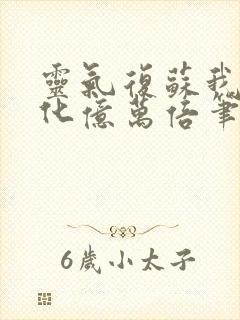 靈氣復蘇我
化億萬倍筆
6歲小太子